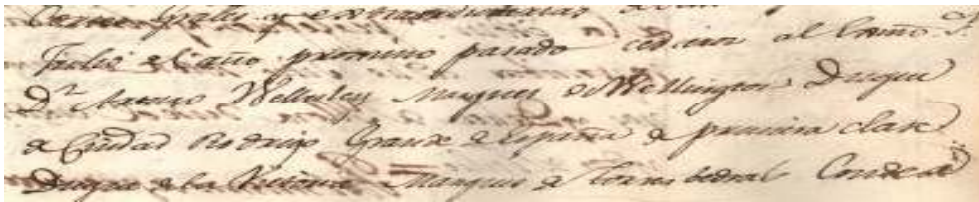 Julio del año proximo pasado cedieron al Exmo. S.
Dn. Arturo Wellesley Marques de Wellington Duque
de Ciudad Rodrigo Grande de España de primera clase
Duque de la Victoria Marques de Torres Vedras Conde de